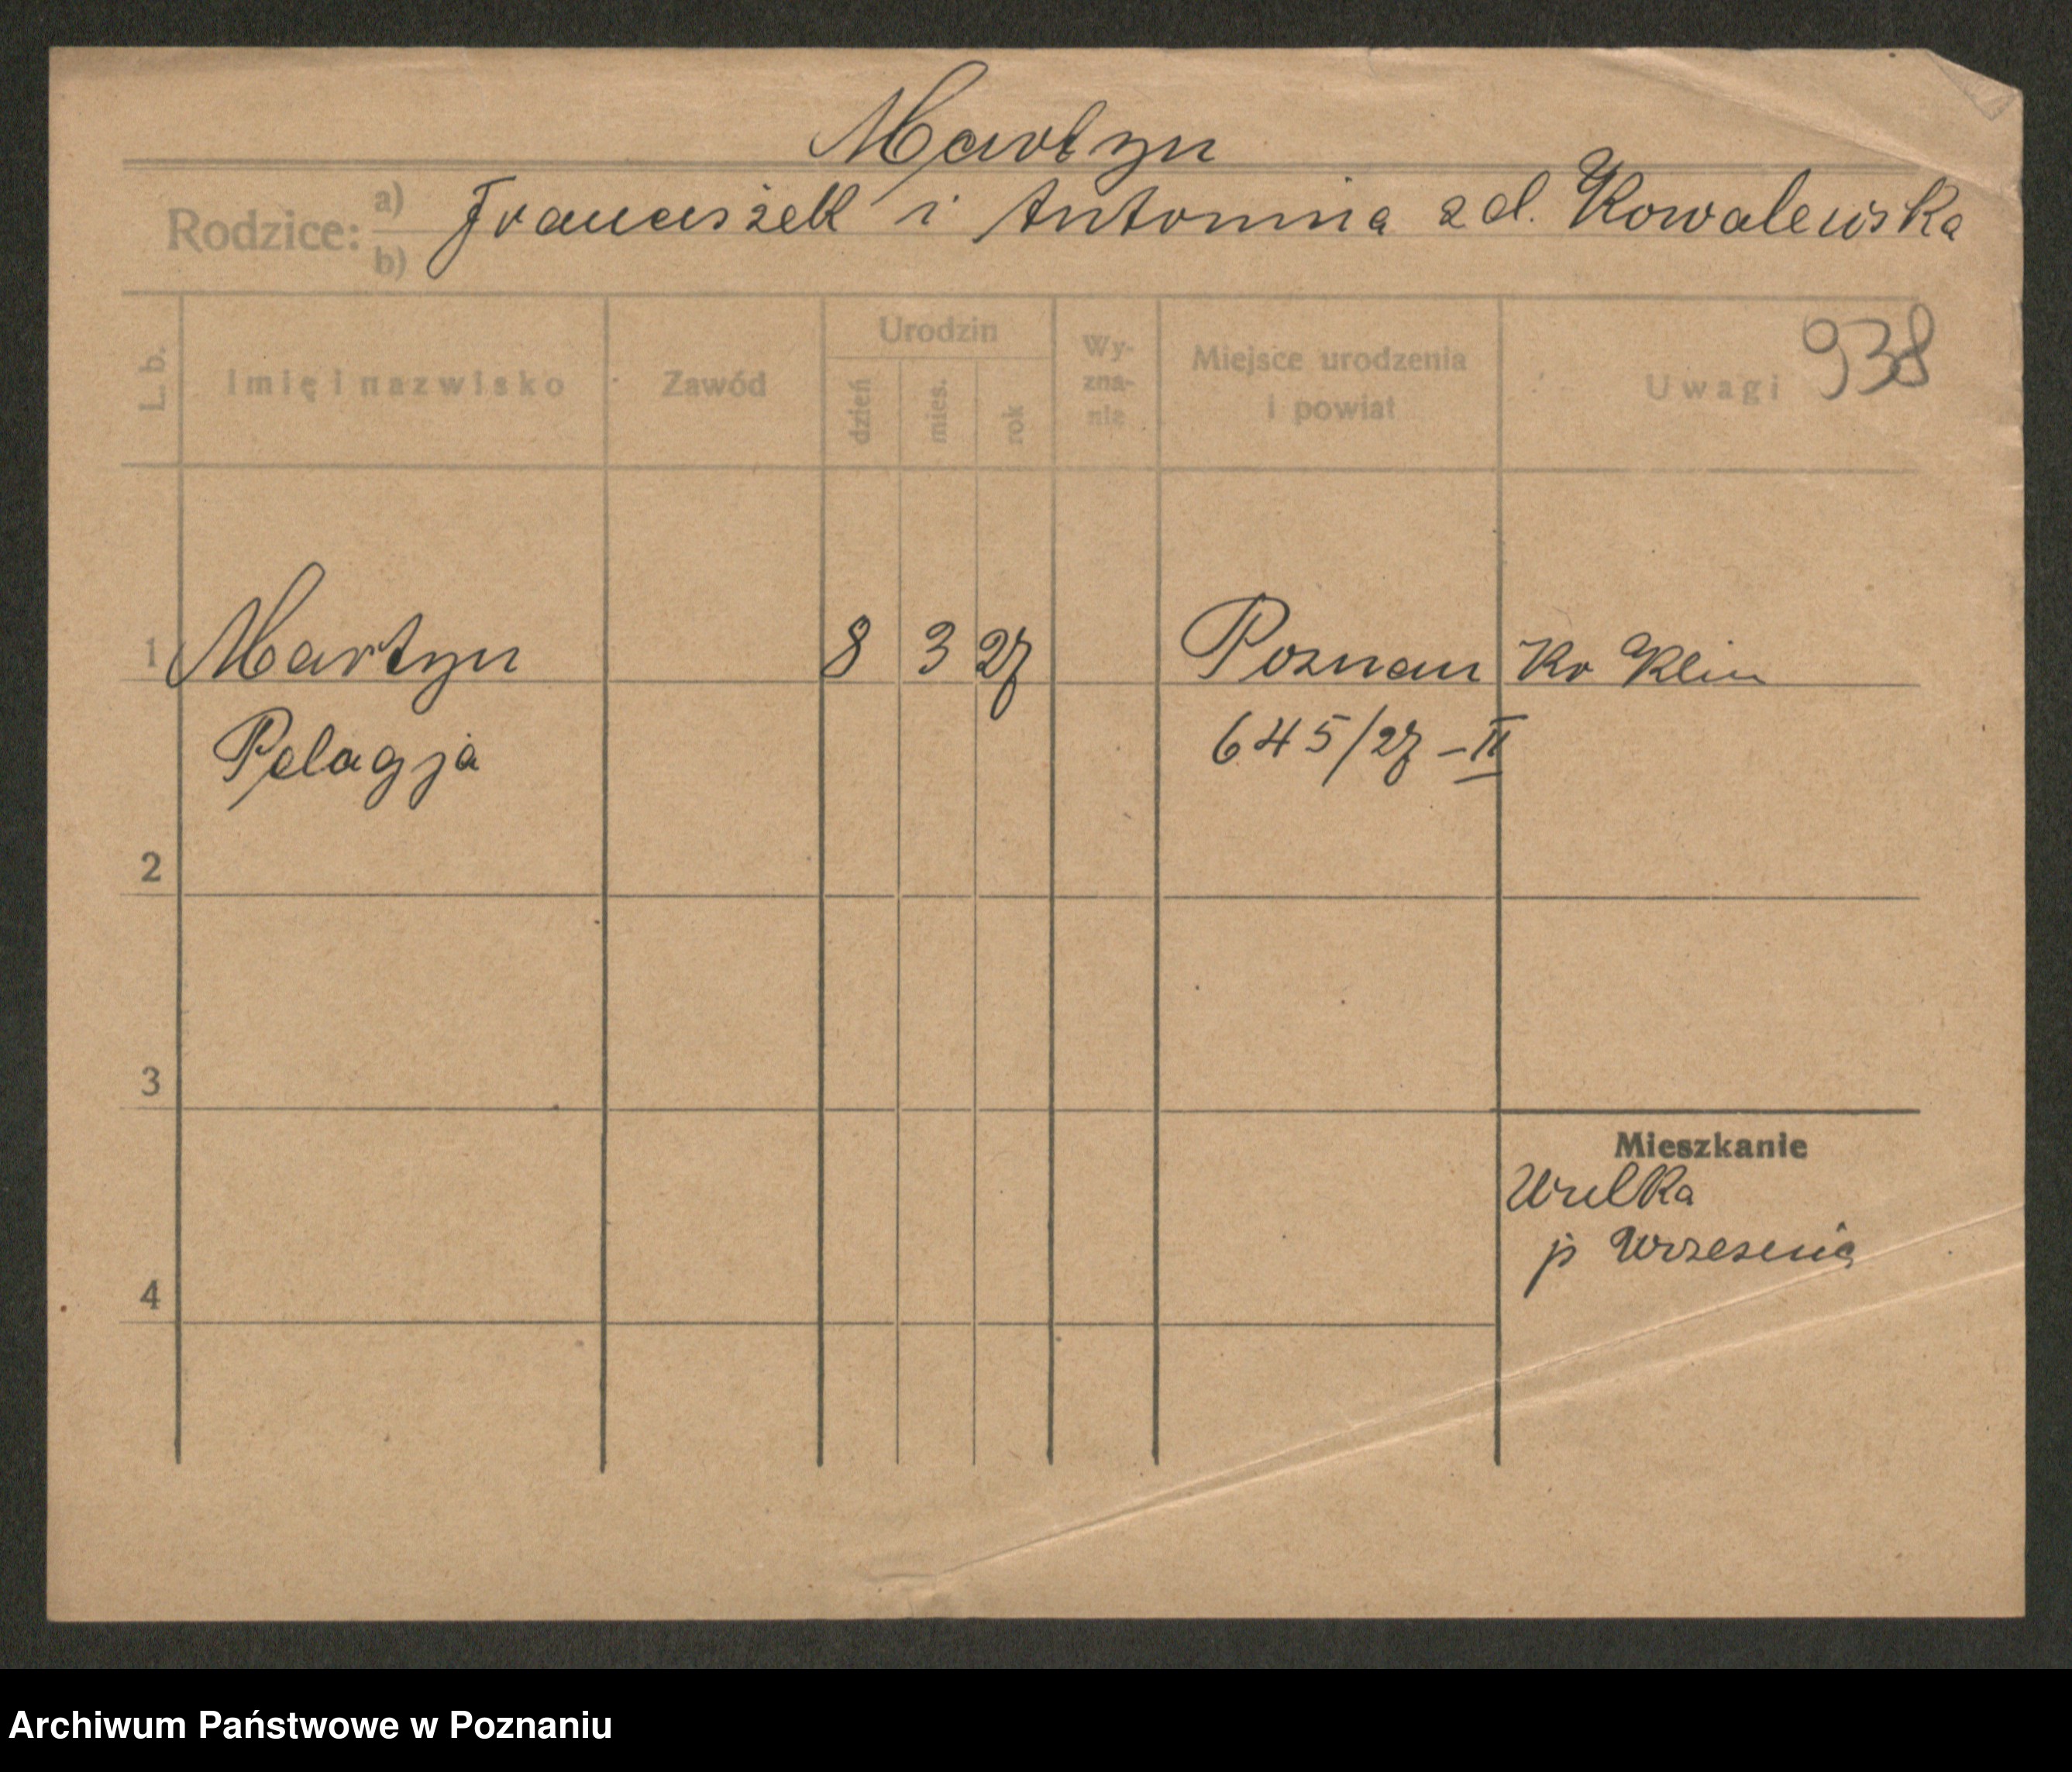 Martyn
Rodzice: a) b) Franciszek i Antonina zd. Kowalewska
938
L. b. Imię i nazwisko Zawód Urodzin dzień mies. rok Wy-zna-nie Miejsce urodzenia i powiat Uwagi
1 Martyn 8 3 27 Poznan Kr Klin
Pelagja 645/27 - II
2
3
Mieszkanie
p Wrzesnia
4
Archiwum Państwowe w Poznaniu